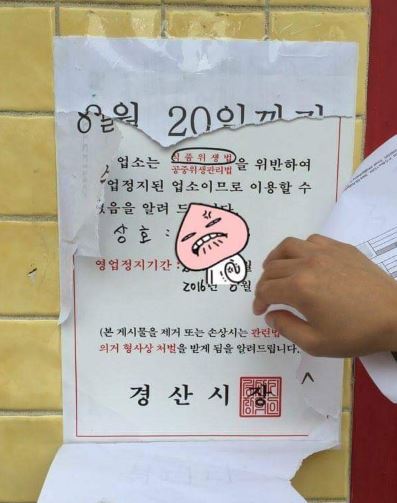 8월 20일까지
업소는 식품위생법
공중위생관리법 을 위반하여
업정지된 업소이므로 이용할 수
없음을 알려 드립니다
상호 :
영업정지기간 : 월
2016년 8월
(본 게시물을 제거 또는 손상시는 관련법
의거 형사상 처벌을 받게 됨을 알려드립니다.
경산시장